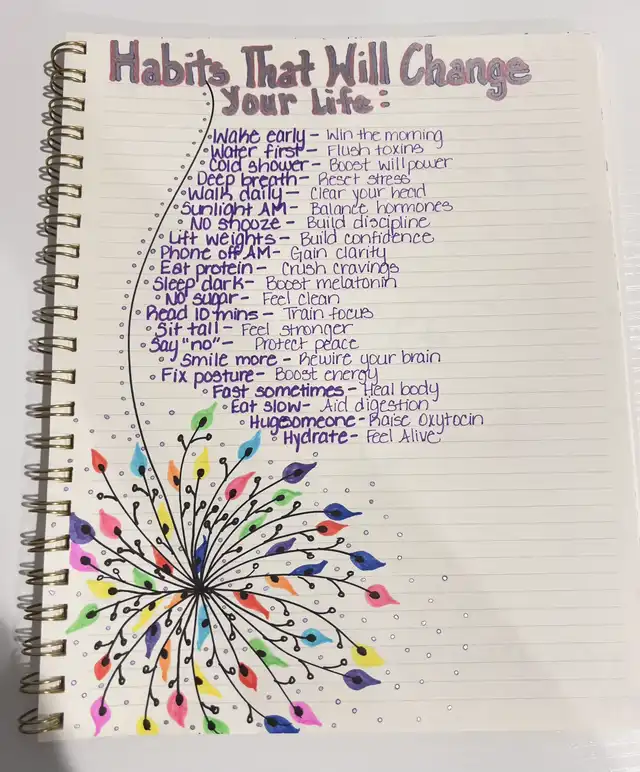 Habits That Will Change
Your Life:
Wake early - Win the morning
Water first - Flush toxins
Cold shower - Boost willpower
Deep breath - Reset stress
Walk daily - Clear your head
Sunlight AM - Balance hormones
No snooze - Build discipline
Lift weights - Build confidence
Phone off AM - Gain clarity
Eat protein - Crush cravings
Sleep dark - Boost melatonin
No sugar - Feel clean
Read 10 mins - Train focus
Sit tall - Feel stronger
Say "no" - Protect peace
Smile more - Rewire your brain
Fix posture - Boost energy
Fast sometimes - Heal body
Eat slow - Aid digestion
Hugesomeone - Raise Oxytocin
Hydrate - Feel Alive